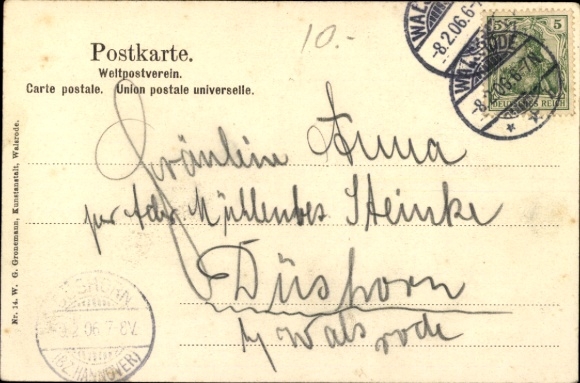 10.-
Postkarte.
Weltpostverein.
Carte postale. Union postale universelle.
5 5
DEUTSCHES REICH
WALSRODE
-8.2.06.6-7N.
WALSRODE
-8.2.06.6-7N.
Fräulein Anna
per Adr Müllenbes Steinke
Düshorn
by Walsrode
DÜSHORN
9.2.06.7-8V.
(BZ. HANNOVER)
Nr. 14. W. G. Gronemann, Kunstanstalt, Walsrode.